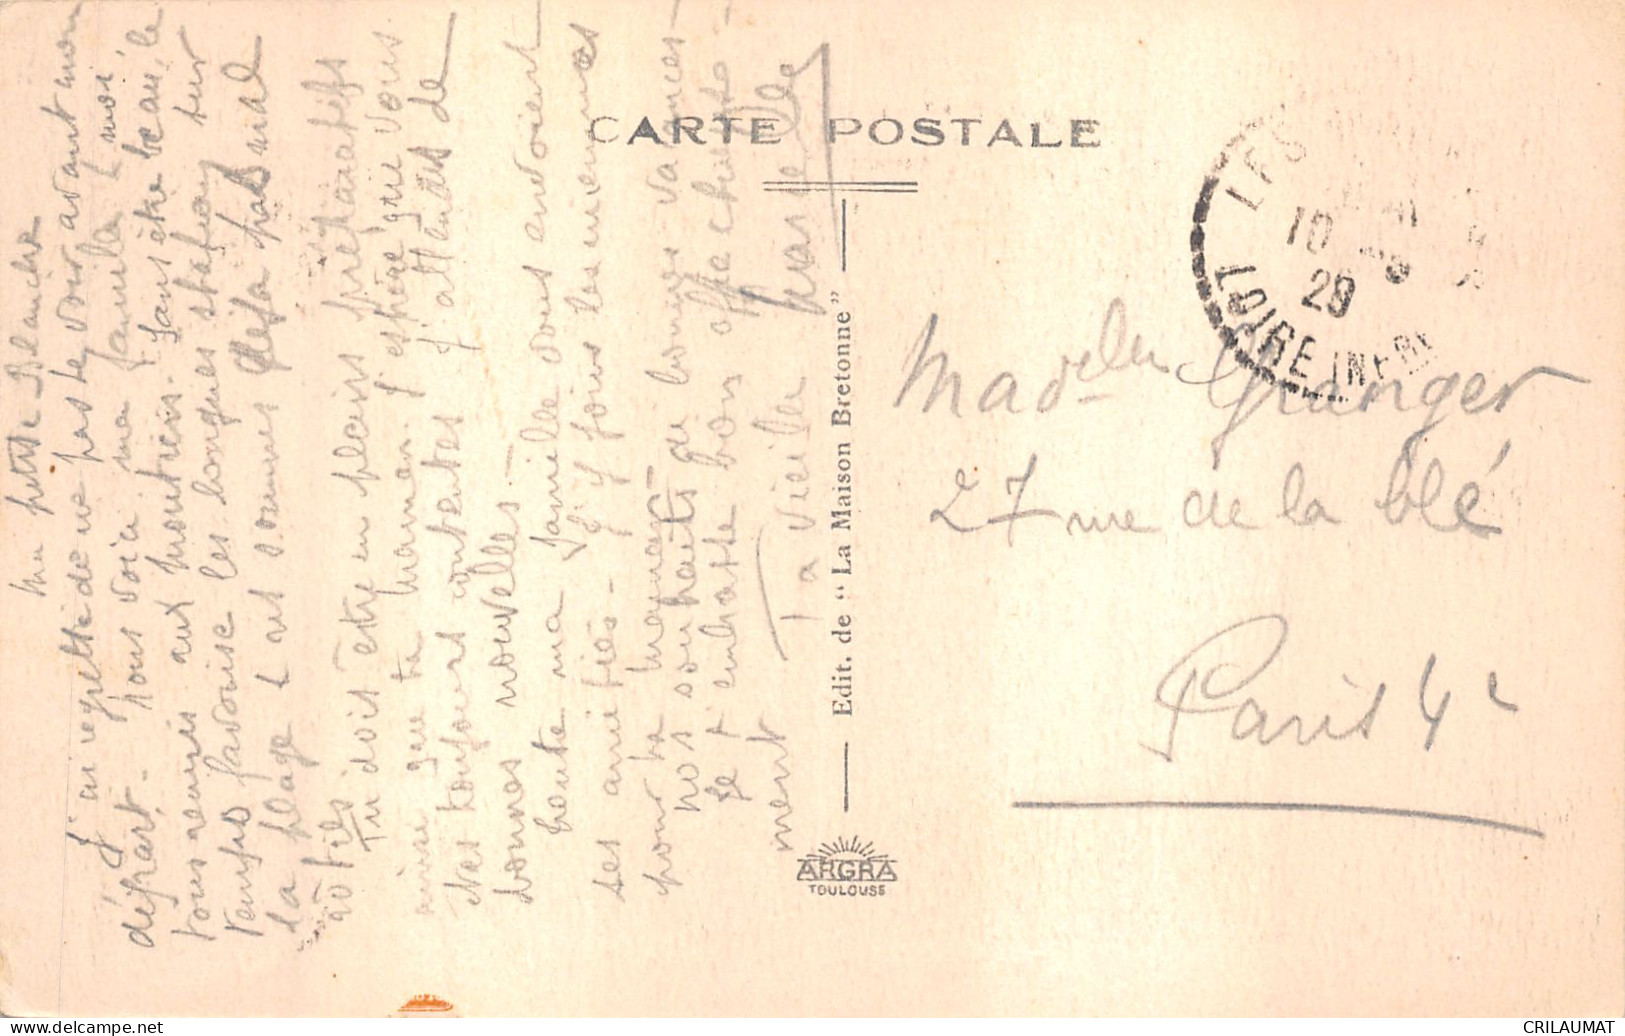 Ma petite Blanche
J'ai regretté de ne pas te voir avant mon
départ. Nous voici ma famille & moi
tous réunis aux Moutiers. Sans être beau, le
temps favorise les longues stations sur
la plage & nous sommes déjà pas mal
rôties
Tu dois être en pleins préparatifs
ainsi que ta maman. J'espère que vous
êtes toujours contentes J'attends de
bonnes nouvelles.
Toute ma famille vous envoient
ses amitiés. J'y joins les miennes
pour ta maman
nos souhaits de bonnes vacances.
Je t'embrasse bien affectueuse-
ment
Ta vieille
Marcelle
CARTE POSTALE
Edit. de "La Maison Bretonne"
ARGRA
TOULOUSE
LES
10
29
LOIRE INFRE
Madelle Granger
27 rue de la blé
Paris 4e
www.delcampe.net
CRILAUMAT